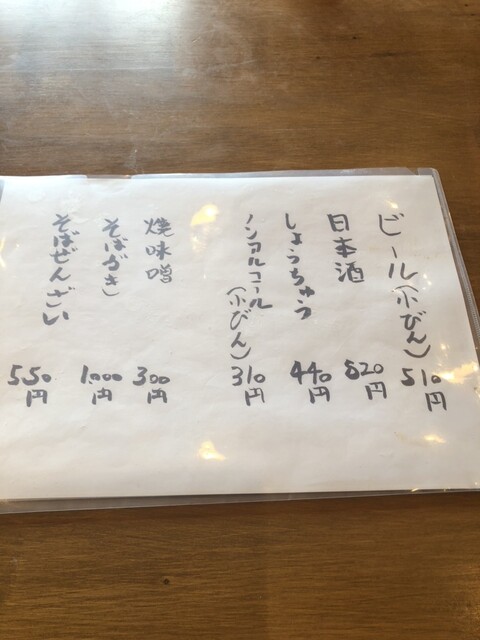 ビール(小びん) 510円
日本酒 820円
しょうちゅう 440円
ノンアルコール(小びん) 310円
焼味噌 300円
そばがき 1,000円
そばぜんざい 550円